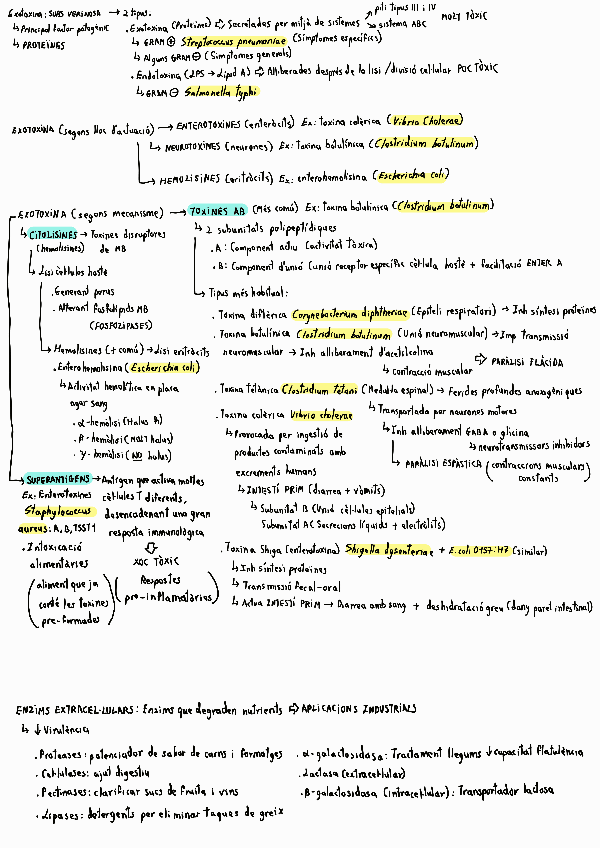 Exotoxina: SUBS VERINOSA → 2 tipus.
↳ Principal factor patogènic
↳ PROTEÏNES
. Exotoxina (Proteïnes) ⇨ Secretades per mitjà de sistemes
↗ pili tipus III i IV
↘ sistema ABC
MOLT TÒXIC
↳ GRAM ⊕ Streptococcus pneumoniae (Símptomes específics)
↳ Alguns GRAM ⊖ (Símptomes generals)
. Endotoxina (LPS → Lípid A) ⇨ Alliberades després de la lisi /divisió cel·lular POC TÒXIC
↳ GRAM ⊖ Salmonella typhi
EXOTOXINA (segons lloc d'actuació) → ENTEROTOXINES (enteròcits) Ex: toxina colèrica (Vibrio Cholerae)
↳ NEUROTOXINES (neurones) Ex: Toxina botulínica (Clostridium botulinum)
↳ HEMOLISINES (eritròcits) Ex: enterohemolisina (Escherichia coli)
EXOTOXINA (segons mecanisme) → TOXINES AB (Més comú) Ex: toxina botulínica (Clostridium botulinum)
↳ 2 subunitats polipeptídiques
. A: Component actiu (activitat tòxica)
. B: Component d'unió (unió receptor específic cèl·lula hoste + facilitació ENTER A
↳ Tipus més habitual:
. Toxina diftèrica Corynebacterium diphtheriae (Epiteli respiratori) → Inh síntesi proteïnes
. Toxina botulínica Clostridium botulinum (Unió neuromuscular) → Imp transmissió
neuromuscular → Inh alliberament d'acetilcolina
↳ contracció muscular
⇨ PARÀLISI FLÀCIDA
. Toxina tetànica Clostridium tetani (Medul·la espinal) → Ferides profundes anoxogèniques
↳ Transportada per neurones motores
↳ Inh alliberament GABA o glicina
↳ neurotransmissors inhibidors
↳ PARÀLISI ESPÀSTICA (contraccions musculars constants)
. Toxina colèrica Vibrio cholerae
↳ Provocada per ingestió de
productes contaminats amb
excrements humans
↳ INTESTÍ PRIM (diarrea + vòmits)
↳ Subunitat B (Unió cèl·lules epitelials)
Subunitat A (Secrecions líquids + electròlits)
. Toxina Shiga (enterotoxina) Shigella dysenteriae + E.coli O157:H7 (similar)
↳ Inh síntesi proteïnes
↳ Transmissió fecal-oral
↳ Actua INTESTÍ PRIM → Diarrea amb sang + deshidratació greu (dany paret intestinal)
↳ CITOLISINES → Toxines disruptores
(hemolisines) de MB
↳ Lisi cèl·lules hoste
. Generant porus
. Alterant fosfolípids MB
(FOSFOLIPASES)
↳ Hemolisines (+ comú) → Lisi eritròcits
. Enterohemolisina (Escherichia coli)
↳ Activitat hemolítica en placa
agar sang
. α-hemòlisi (Halus A)
. β-hemòlisi (MOLT halus)
. γ-hemòlisi (NO halus)
SUPERANTÍGENS → Antigen que activa moltes
cèl·lules T diferents,
desencadenant una gran
resposta immunològica
⇩
XOC TÒXIC
(Respostes
pro-inflamatòries)
Ex: Enterotoxines
Staphylococcus
aureus: A, B, TSST1
. Intoxicació
alimentàries
(aliment que ja
conté les toxines
pre-formades)
ENZIMS EXTRACEL·LULARS: Enzims que degraden nutrients ⇨ APLICACIONS INDUSTRIALS
↳ ↓ Virulència
. Proteases: potenciador de sabor de carns i formatges
. Cel·lulases: ajut digestiu
. Pectinases: clarificar sucs de fruita i vins
. Lipases: detergents per eliminar taques de greix
. α-galactosidasa: Tractament llegums ↓ capacitat flatulència
. Lactasa (extracel·lular)
. β-galactosidasa (intracel·lular): Transportador lactosa